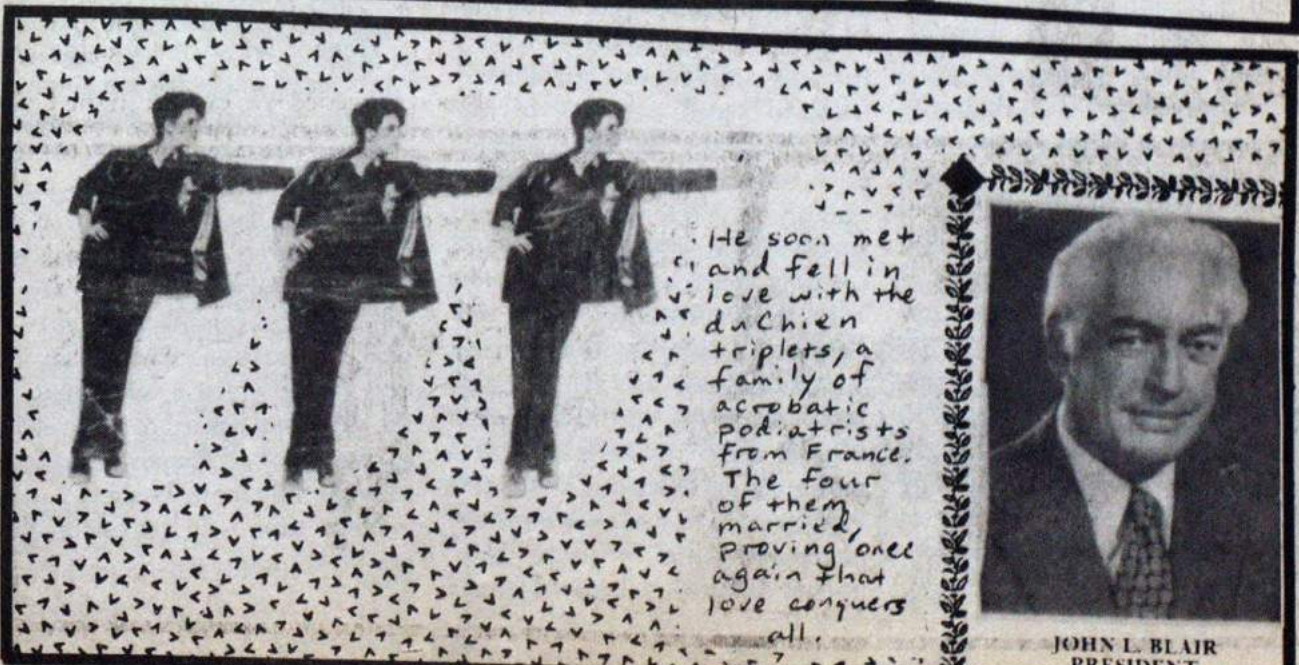 He soon met
and fell in
love with the
du Chien
triplets, a
family of
acrobatic
podiatrists
from France.
The four
of them
married,
proving once
again that
love conquers
all.
JOHN L. BLAIR
PRESIDENT